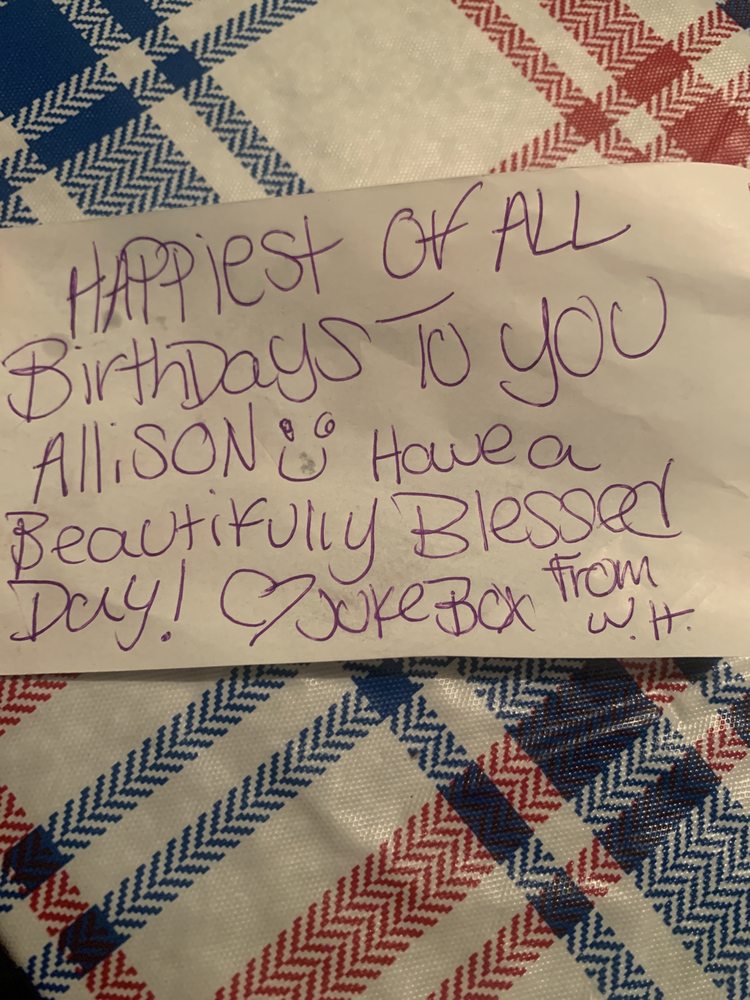 HAPPiEST OF ALL
BirthDAYS TO YOU
AlliSON Have a
Beautifully Blessed
Day! JukeBox from
W.H.